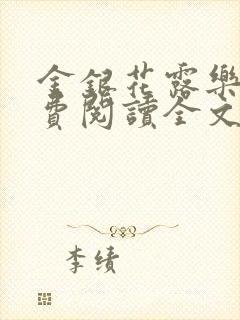 金銀花露樂
費閱讀全文
李績